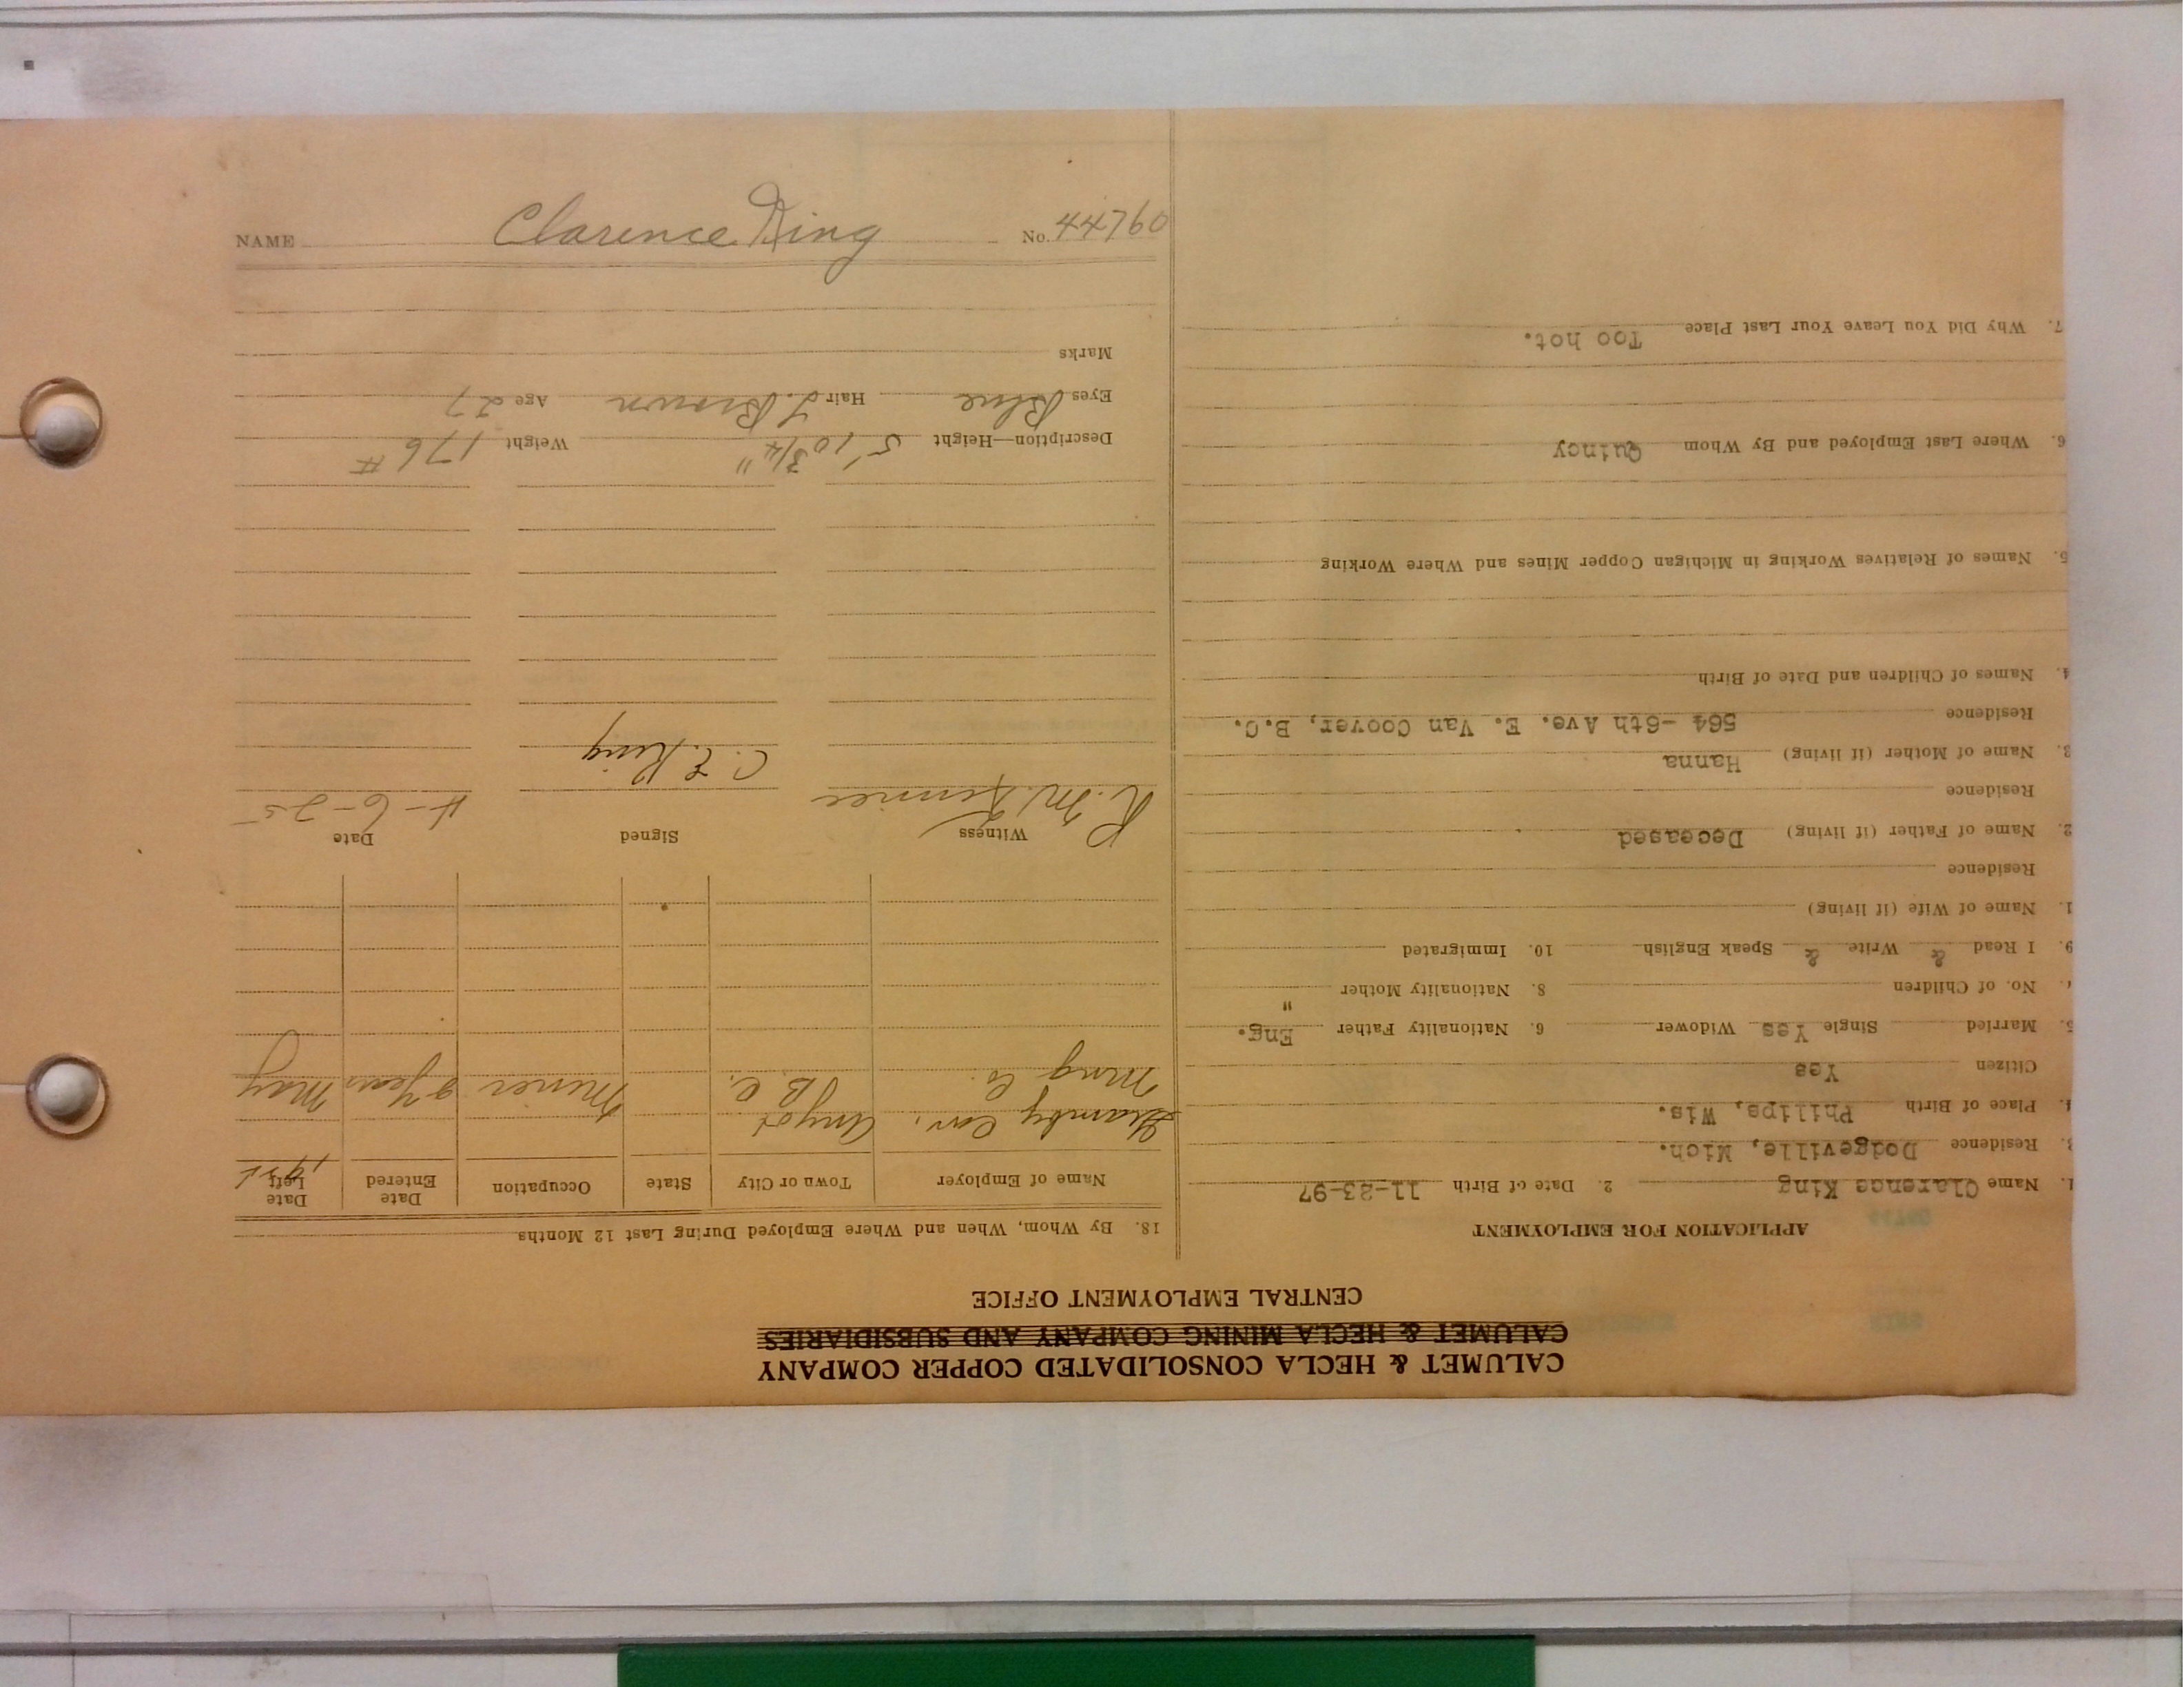 CALUMET & HECLA CONSOLIDATED COPPER COMPANY
CALUMET & HECLA MINING COMPANY AND SUBSIDIARIES
CENTRAL EMPLOYMENT OFFICE
APPLICATION FOR EMPLOYMENT
1. Name Clarence King 2. Date of Birth 11-23-97
3. Residence Dodgeville, Mich.
4. Place of Birth Phillips, Wis.
Citizen Yes
5. Married Single Yes Widower 6. Nationality Father Eng.
7. No. of Children 8. Nationality Mother "
9. I Read & Write & Speak English 10. Immigrated
1. Name of Wife (if living)
Residence
2. Name of Father (if living) Deceased
Residence
3. Name of Mother (if living) Hanna
Residence 564 -6th Ave. E. Van Coover, B.C.
4. Names of Children and Date of Birth
5. Names of Relatives Working in Michigan Copper Mines and Where Working
6. Where Last Employed and By Whom Quincy
7. Why Did You Leave Your Last Place Too hot.
18. By Whom, When and Where Employed During Last 12 Months
Name of Employer Town or City State Occupation Date Entered Date Left
Granby Con. Anyox
Ming Co. B.C. Miner 2 Years May
Witness Signed Date
C. E. King 4-6-25
Description—Height 5' 10 3/4" Weight 176 #
Eyes Blue Hair L. Brown Age 27
Marks
NAME Clarence King No. 44760